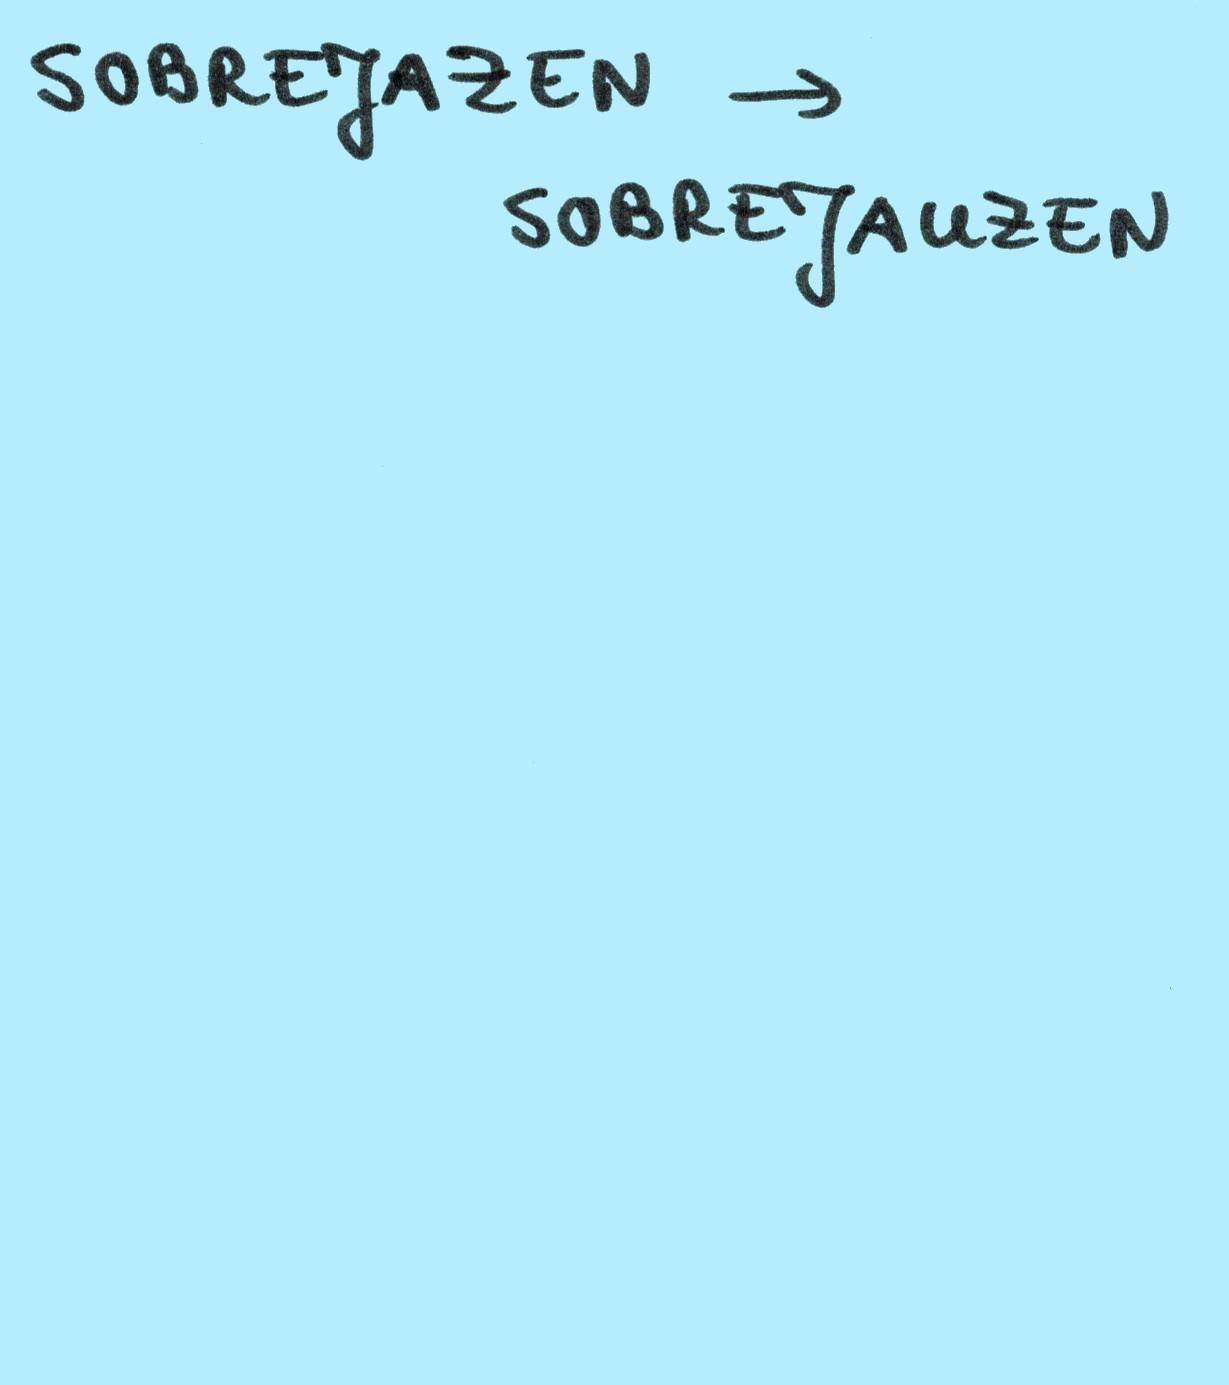 SOBREJAZEN →
SOBREJAUZEN